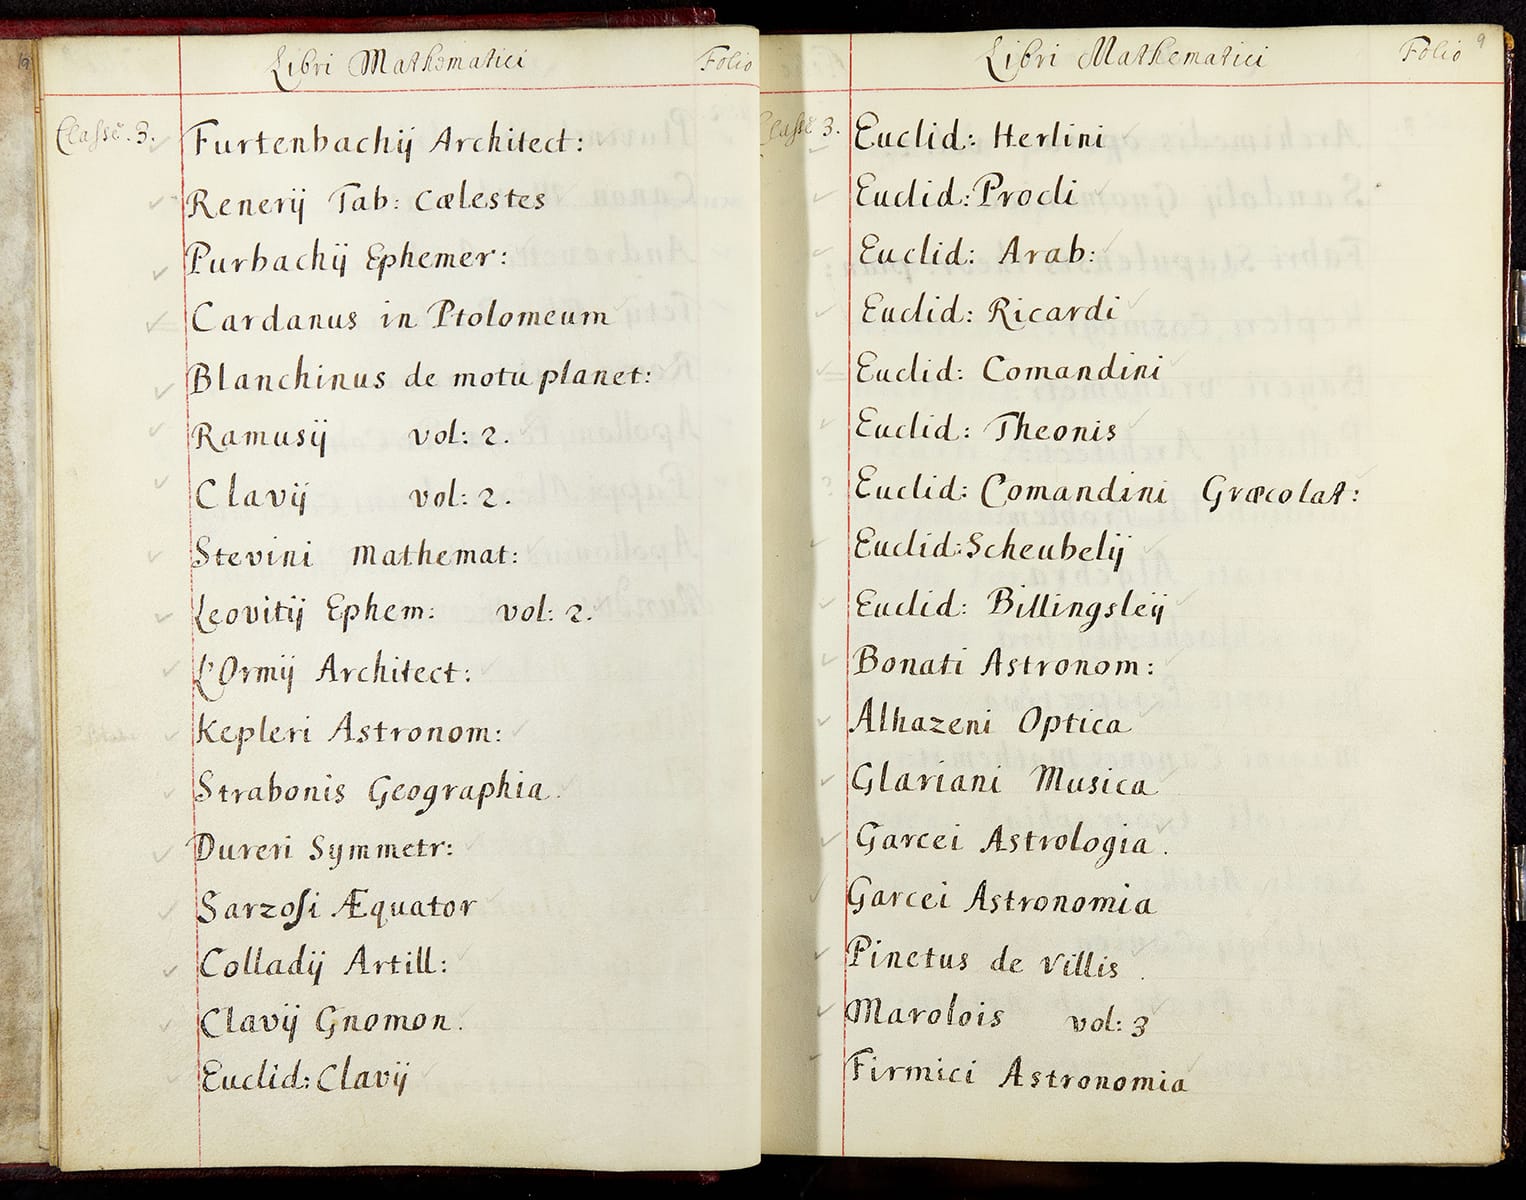 Libri Mathematici Folio
Classe. 3. Furtenbachij Architect:
Renerij Tab: Cælestes
Purbachij Ephemer:
Cardanus in Ptolomeum
Blanchinus de motu planet:
Ramusij vol: 2.
Clavij vol: 2.
Stevini Mathemat:
Leovitij Ephem: vol: 2.
L'Ormij Architect:
Kepleri Astronom:
Strabonis Geographia.
Dureri Symmetr:
Sarzosi Æquator
Colladij Artill:
Clavij Gnomon.
Euclid: Clavij
Libri Mathematici Folio 9
Classe 3. Euclid: Herlini
Euclid: Procli
Euclid: Arab:
Euclid: Ricardi
Euclid: Comandini
Euclid: Theonis
Euclid: Comandini Græcolat:
Euclid: Scheubelij
Euclid: Billingsleij
Bonati Astronom:
Alhazeni Optica
Glariani Musica
Garcei Astrologia.
Garcei Astronomia
Pinctus de Villis.
Marolois vol: 3
Firmici Astronomia